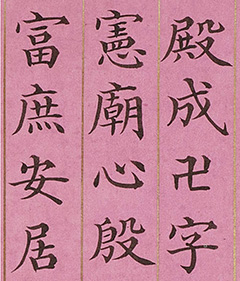 殿成卍字
憲廟心殷
富庶安居